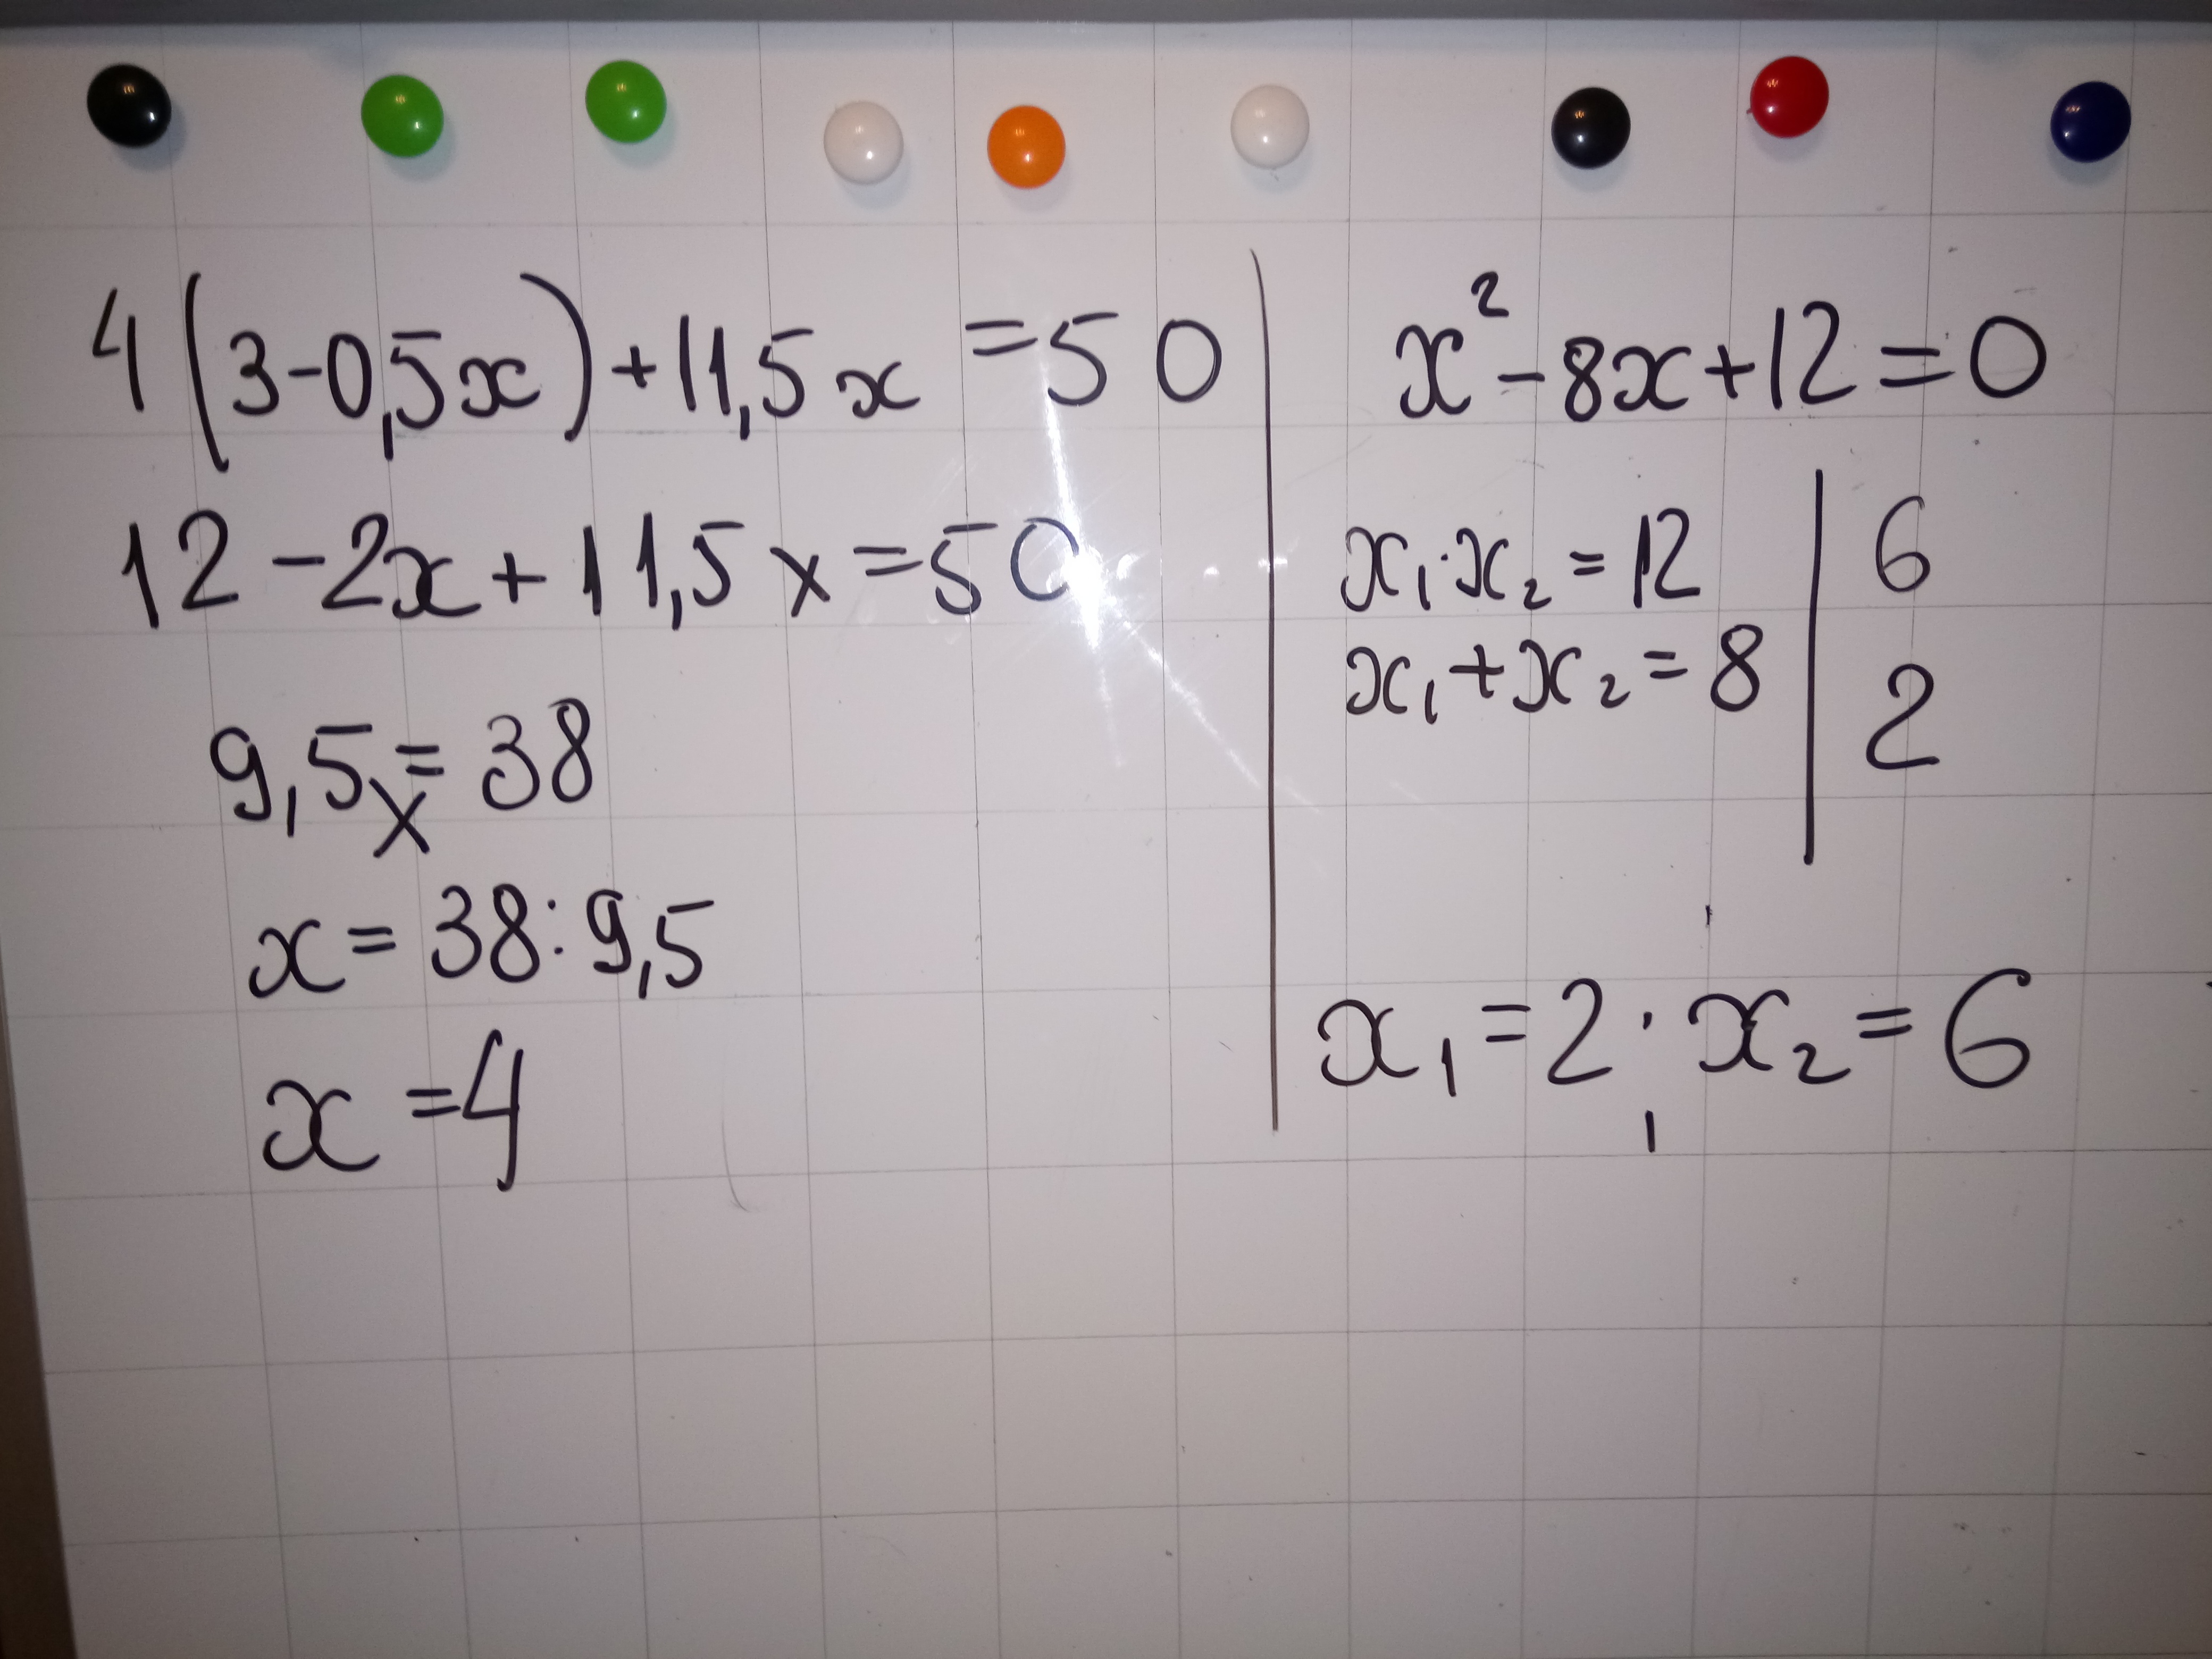 4(3-0,5x)+11,5x=50
12-2x+11,5x=50
9,5x=38
x=38:9,5
x=4
x²-8x+12=0
x₁·x₂=12
x₁+x₂=8
6
2
x₁=2; x₂=6